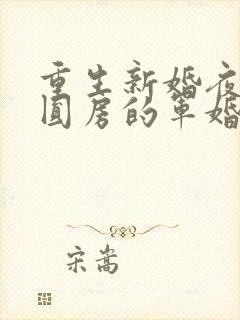 重生新婚夜
圆房的军婚
宋蒿